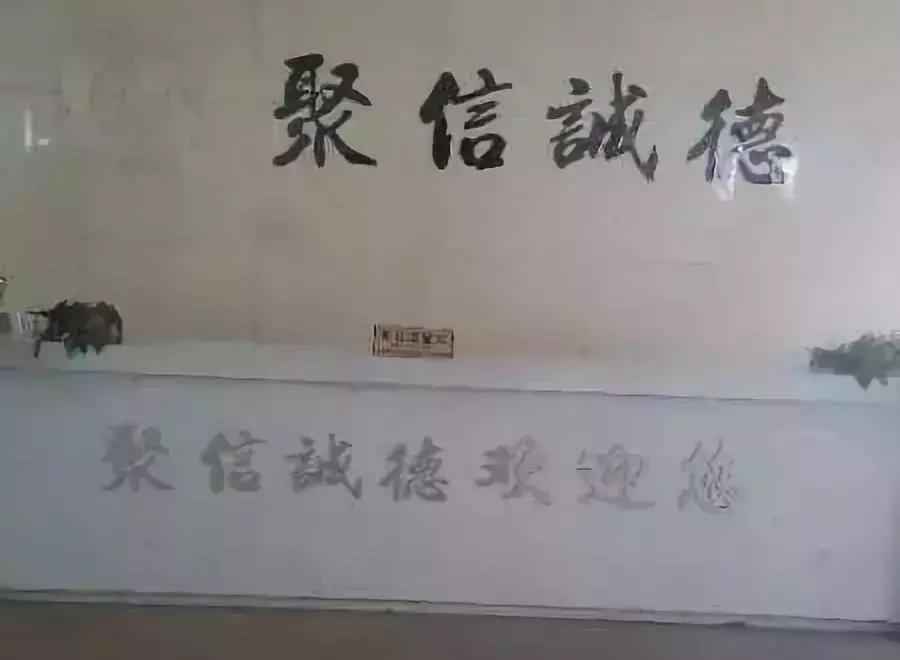 聚信誠德
聚信誠德欢迎您